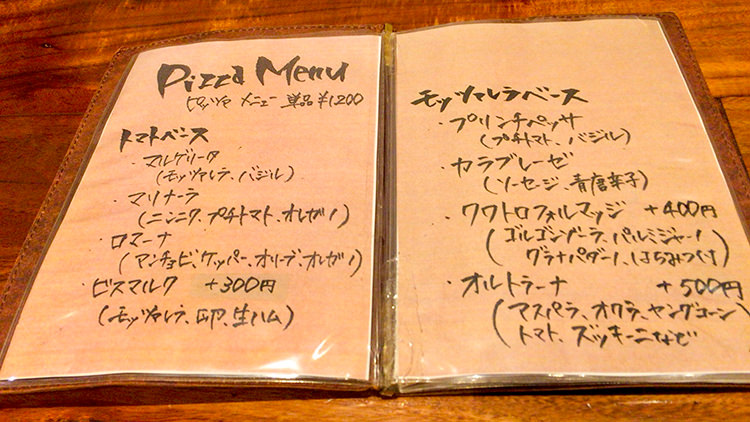 Pizza Menu
ピッツァ メニュー 単品 ¥1200
トマトベース
・マルゲリータ
(モッツァレラ、バジル)
・マリナーラ
(ニンニク、プチトマト、オレガノ)
・ロマーナ
(アンチョビ、ケッパー、オリーブ、オレガノ)
・ビスマルク +300円
(モッツァレラ、卵、生ハム)
モッツァレラベース
・プリンチペッサ
(プチトマト、バジル)
・カラブレーゼ
(ソーセージ、青唐辛子)
・クワトロフォルマッジ +400円
(ゴルゴンゾーラ、パルミジャーノ
グラナパダーノ、はちみつ付)
・オルトラーナ +500円
(アスパラ、オクラ、ヤングコーン
トマト、ズッキーニなど)